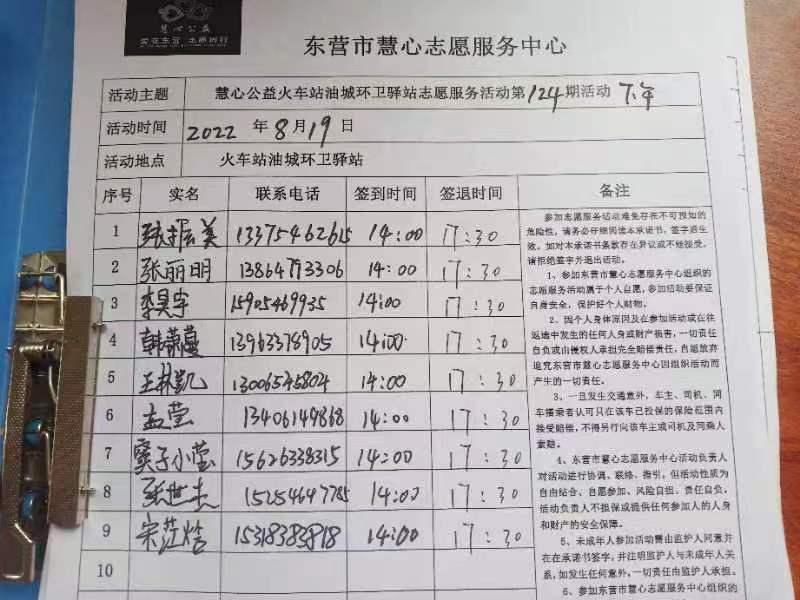 慧心公益
东营市慧心志愿服务中心
活动主题 慧心公益火车站油城环卫驿站志愿服务活动第124期活动 下午
活动时间 2022 年 8 月 19 日
活动地点 火车站油城环卫驿站
序号 实名 联系电话 签到时间 签退时间 备注
1 张振美 13375462615 14:00 17:30
2 张丽明 13864793306 14:00 17:30
3 15905469935 14:00 17:30
4 韩萧蔓 13963378905 14:00 17:30
5 王林凯 13006545804 14:00 17:30
6 孟莹 13406149868 14:00 17:30
7 窦子小莹 15626338315 14:00 17:30
8 张世杰 15254647785 14:00 17:30
9 宋茳焓 15318383818 14:00 17:30
10
参加志愿服务活动难免存在不可预知的
危险性，请务必仔细阅读本承诺书，签字后生
效。如对本承诺书条款存在异议或不能接受，
请拒绝签字并退出活动。
1、参加东营市慧心志愿服务中心组织的
志愿服务活动属于个人自愿，参加活动要保证
自身安全，保护好个人财物。
2、因个人身体原因及在参加活动或在往
返途中发生的任何人身或财产损害，一切责任
自负或由侵权人承担完全赔偿责任，自愿放弃
追究东营市慧心志愿服务中心因组织活动而
产生的一切责任。
3、一旦发生交通意外，车主、司机、同
车搭乘者认可只在该车已投保的保险范围内
接受赔偿，不得另行向该车主或司机及同乘人
索赔。
4、东营市慧心志愿服务中心活动负责人
对活动进行协调、联络、指引，但活动性质为
自由结合、自愿参加、风险自担、责任自负。
活动负责人不担保或提供任何参加人的人身
和财产的安全保障。
5、未成年人参加活动需由监护人同意并
在在承诺书签字，并注明监护人与未成年人关
系，如发生任何意外，一切责任由监护人承担。
6、参加东营市慧心志愿服务中心组织的